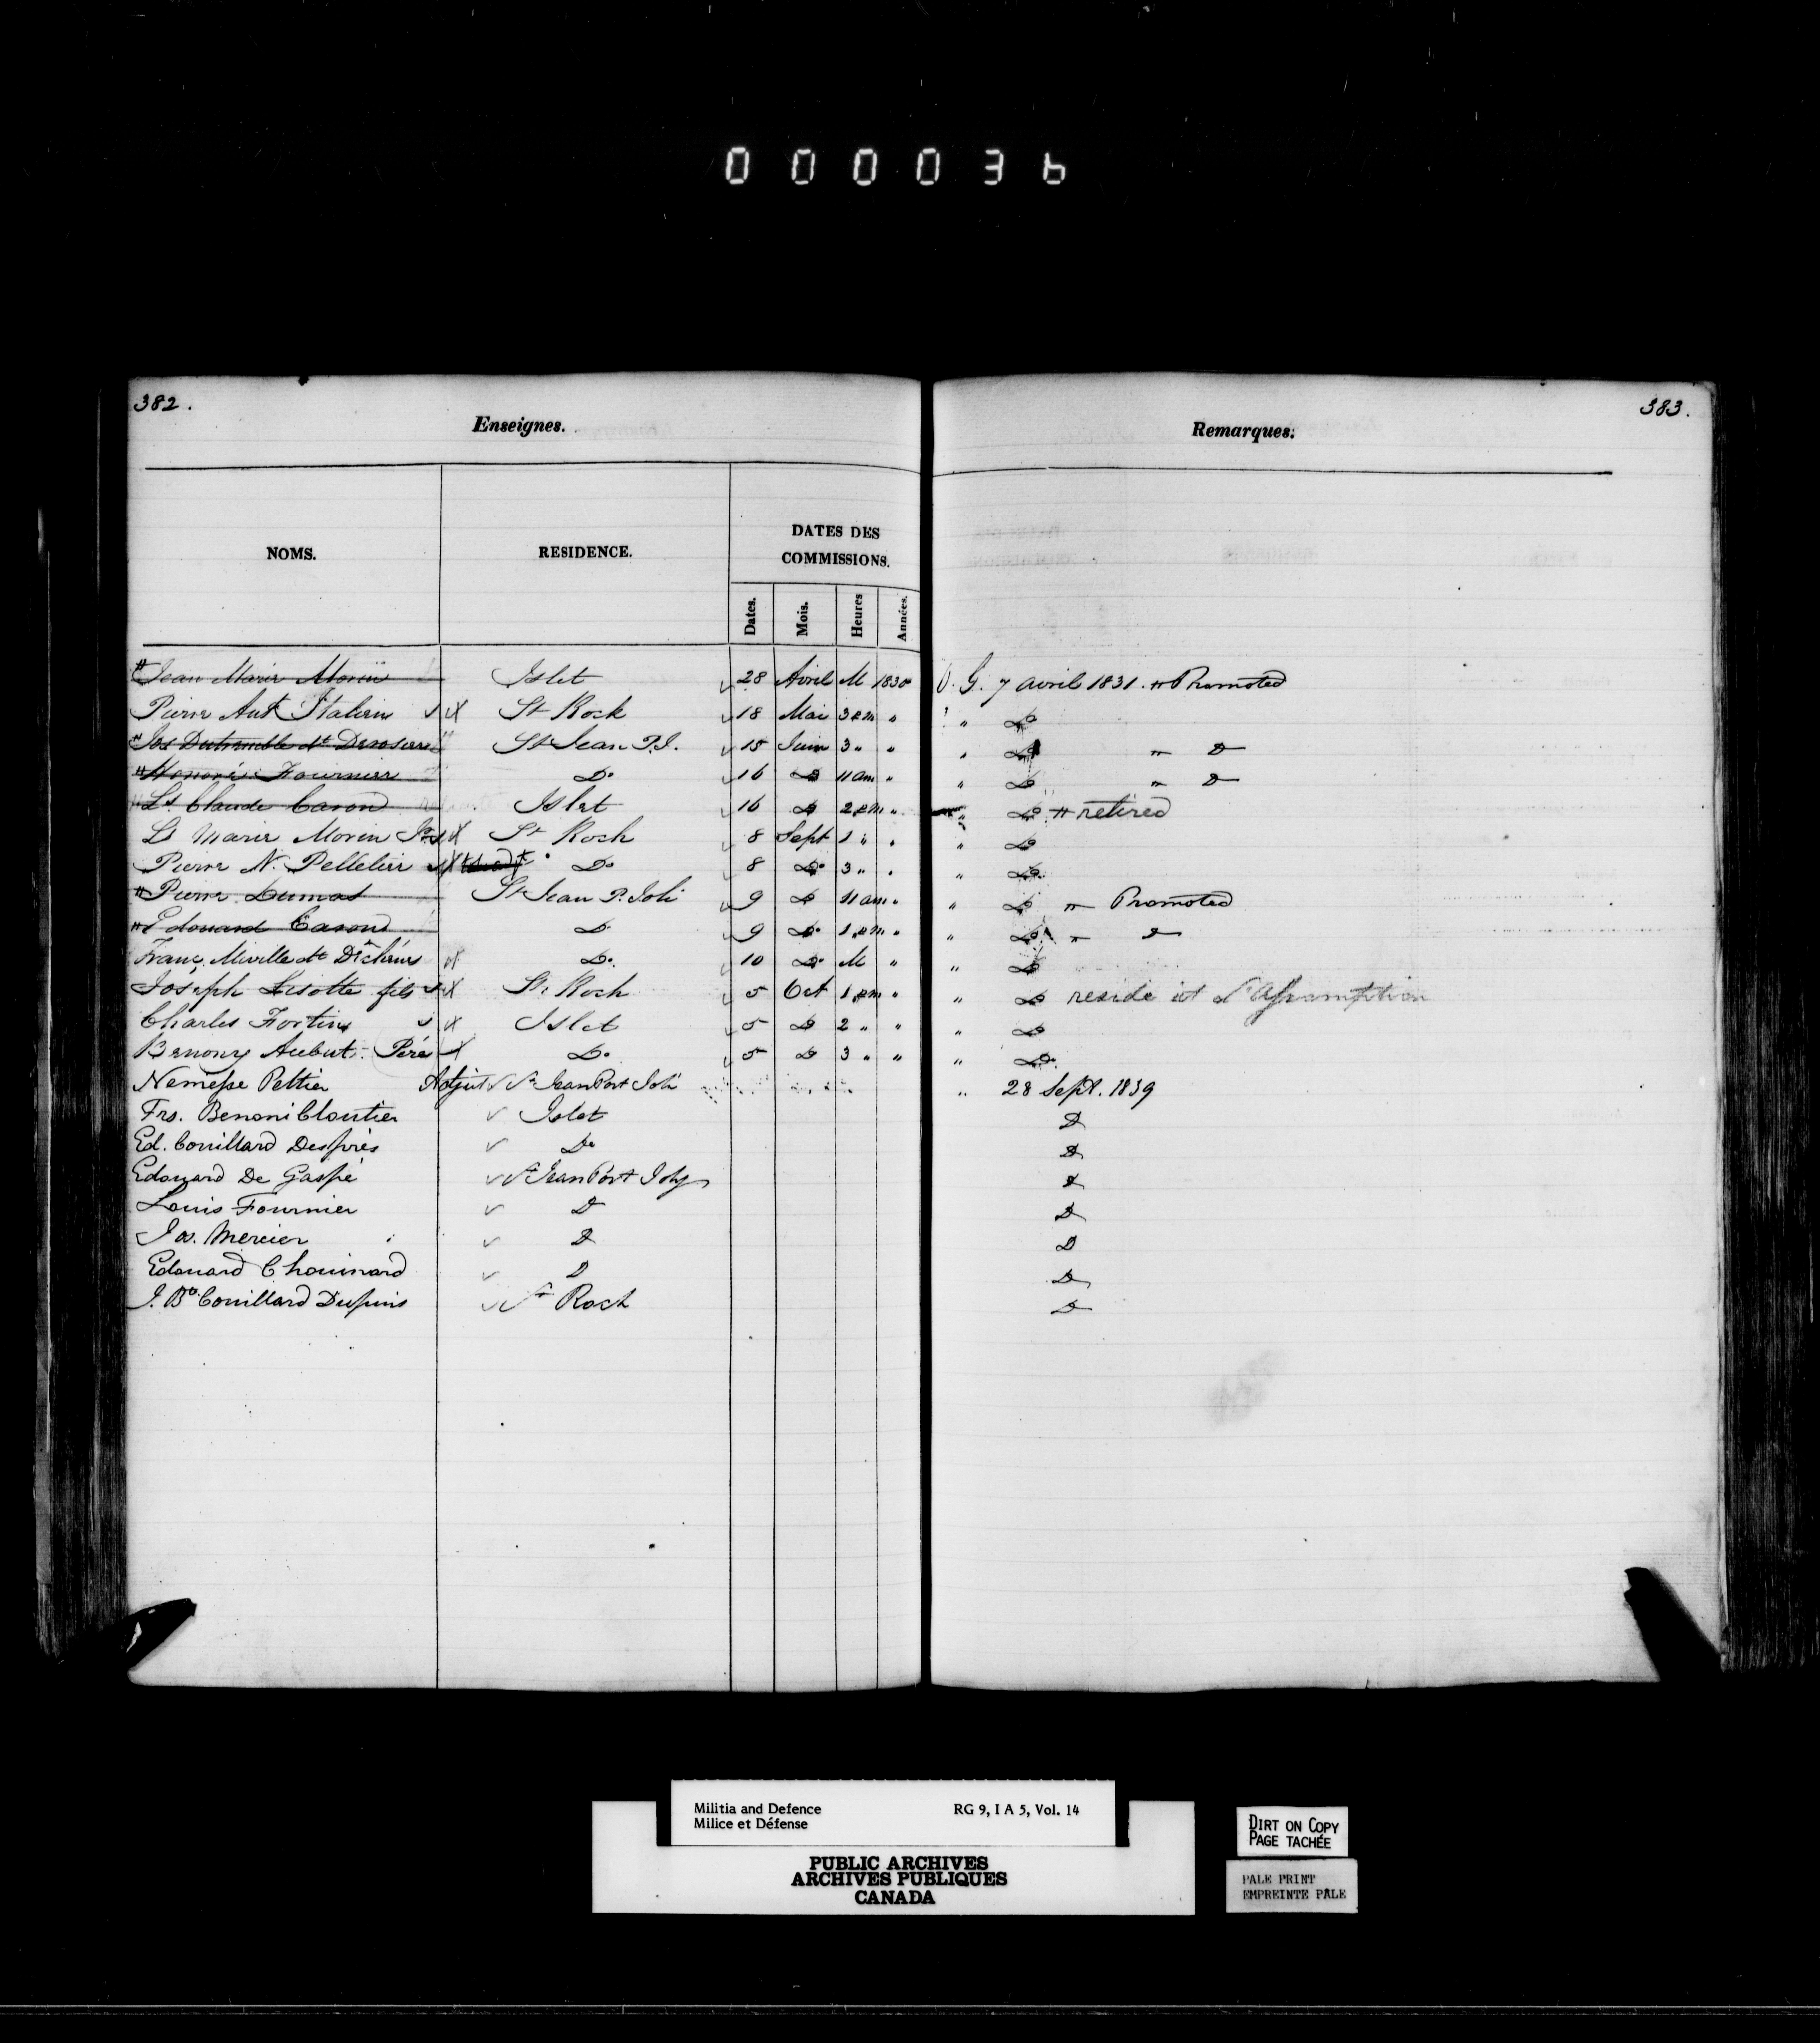 000036
382.
Enseignes.
NOMS. RESIDENCE. DATES DES COMMISSIONS.
Dates. Mois. Heures Années.
# Jean Marie Morin Islet 28 Avril M 1830
Pierre Ant St Roch 18 Mai 3 P.M "
" Jos Dutremble dt Desrosiers St Jean P.J. 15 Juin 3 " "
# Honoré Fournier Do 16 Do 11 am "
" Ls Claude Caron Islet 16 Do 2 P.M "
Ls Marie Morin St Roch 8 Sept 1 " "
Pierre N. Pelletier Do 8 Do 3 " "
# Pierre Dumas St Jean P. Joli 9 Do 11 am "
# Edouard Caron Do 9 Do 1 P.M "
Franç. Miville dt Dechênes Do. 10 Do M "
Joseph Lisotte fils St. Roch 5 Oct 1 P.M "
Charles Fortin Islet 5 Do 2 " "
Benony Aubut Père Do. 5 Do 3 " "
Nemesse Peltier Adjut St Jean Port Joli
Frs. Benoni Cloutier Islet
Ed. Couillard Després Do
Edouard De Gaspé St Jean Port Joly
Louis Fournier D
Jos. Mercier D
Edouard Chouinard D
J. Bte Couillard Dupuis St Roch
383.
Remarques.
O. G. 7 avril 1831. # Promoted
" Do
" Do # Do
" Do # Do
" Do # retired
" Do
" Do
" Do # Promoted
" Do # Do
" Do
" Do reside à L'Assomption
" Do
" Do.
" 28 Sept. 1839
D
D
D
D
D
D
D
Militia and Defence RG 9, I A 5, Vol. 14
Milice et Défense
PUBLIC ARCHIVES
ARCHIVES PUBLIQUES
CANADA
DIRT ON COPY
PAGE TACHÉE
PALE PRINT
EMPREINTE PÂLE